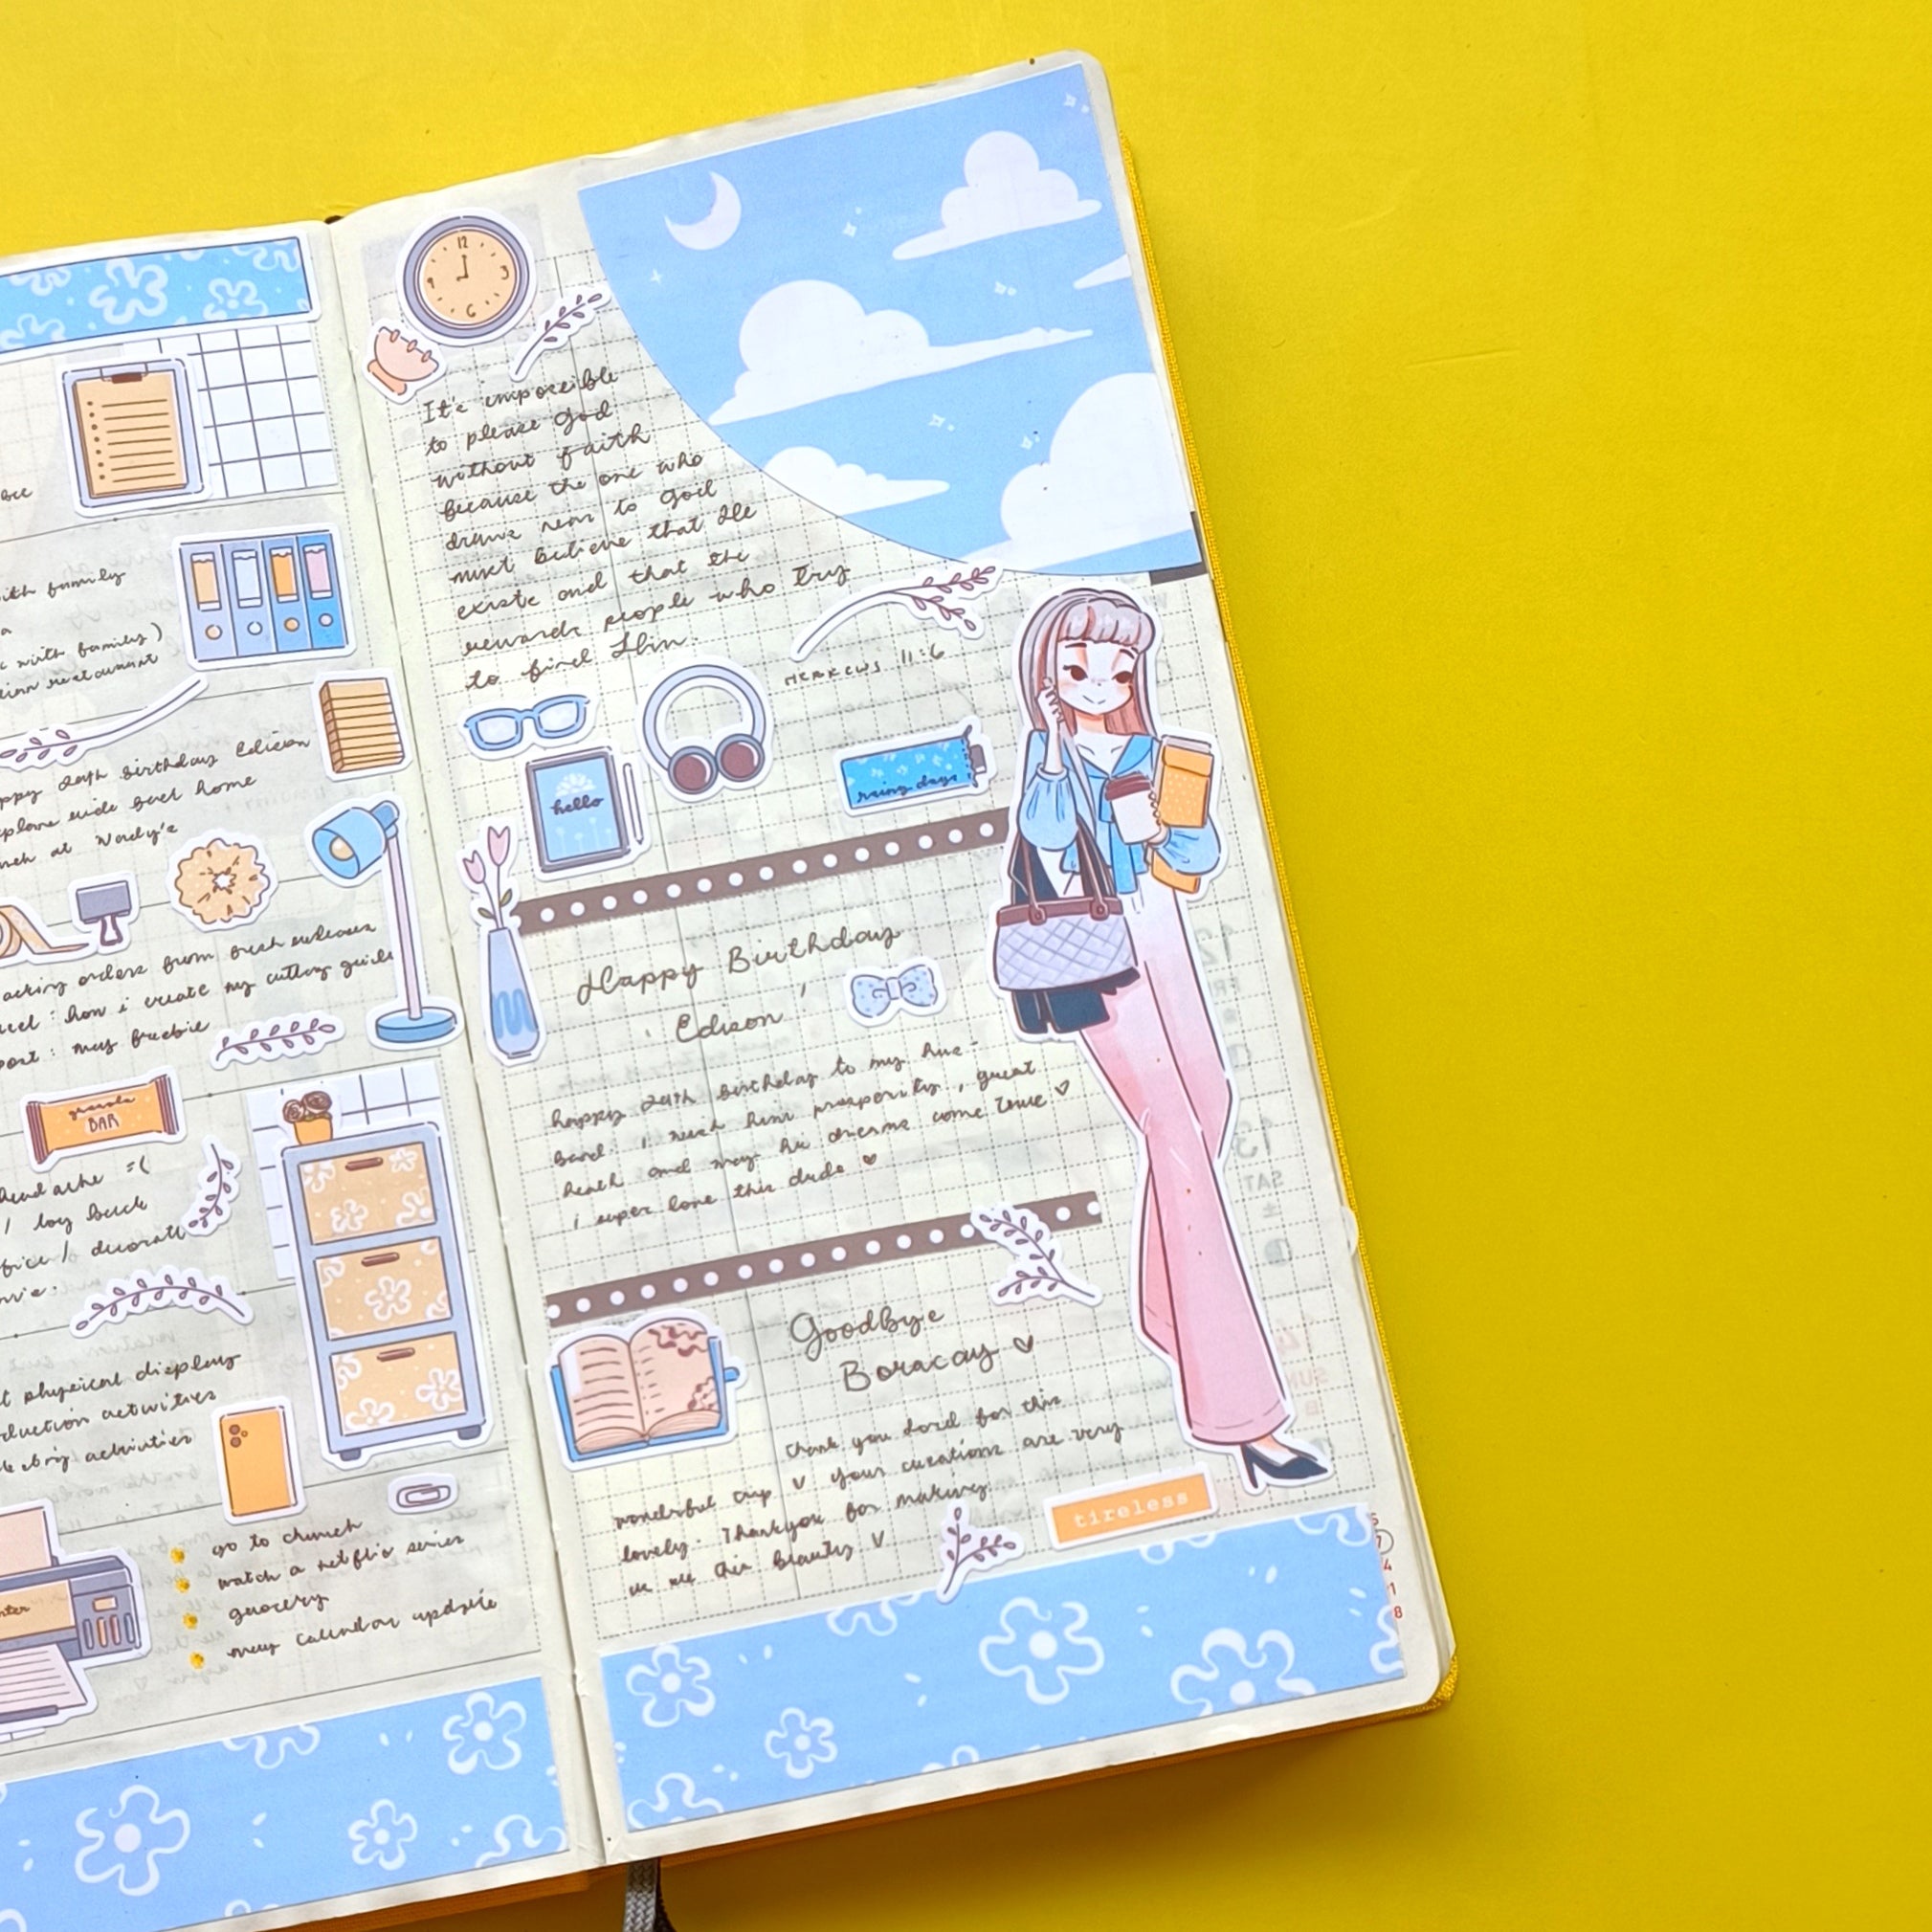 with family
with family)
restaurant
happy 29th birthday Edison
explore side boat home
lunch at Nonly's
packing orders from fresh releases
reel: how i create my cutting guide
post: may freebie
granola
BAR
headache =(
/ log book
office / decorate
movie.
physical display
production activities
activities
go to church
watch a netflix series
grocery
may calendar update
12
3
6
9
It's impossible
to please God
without faith
because the one who
draws near to God
must believe that He
exists and that He
rewards people who try
to find Him.
HEBREWS 11:6
hello
rainy days
Happy Birthday
Edison!
happy 29th birthday to my hus-
band. i wish him prosperity, great
health and may his dreams come true ♡
i super love this dude ♡
Goodbye
Boracay ♡
thank you Lord for this
wonderful trip v your creations are very
lovely. Thankyou for making
us see this beauty v
tireless
7
4
1
8